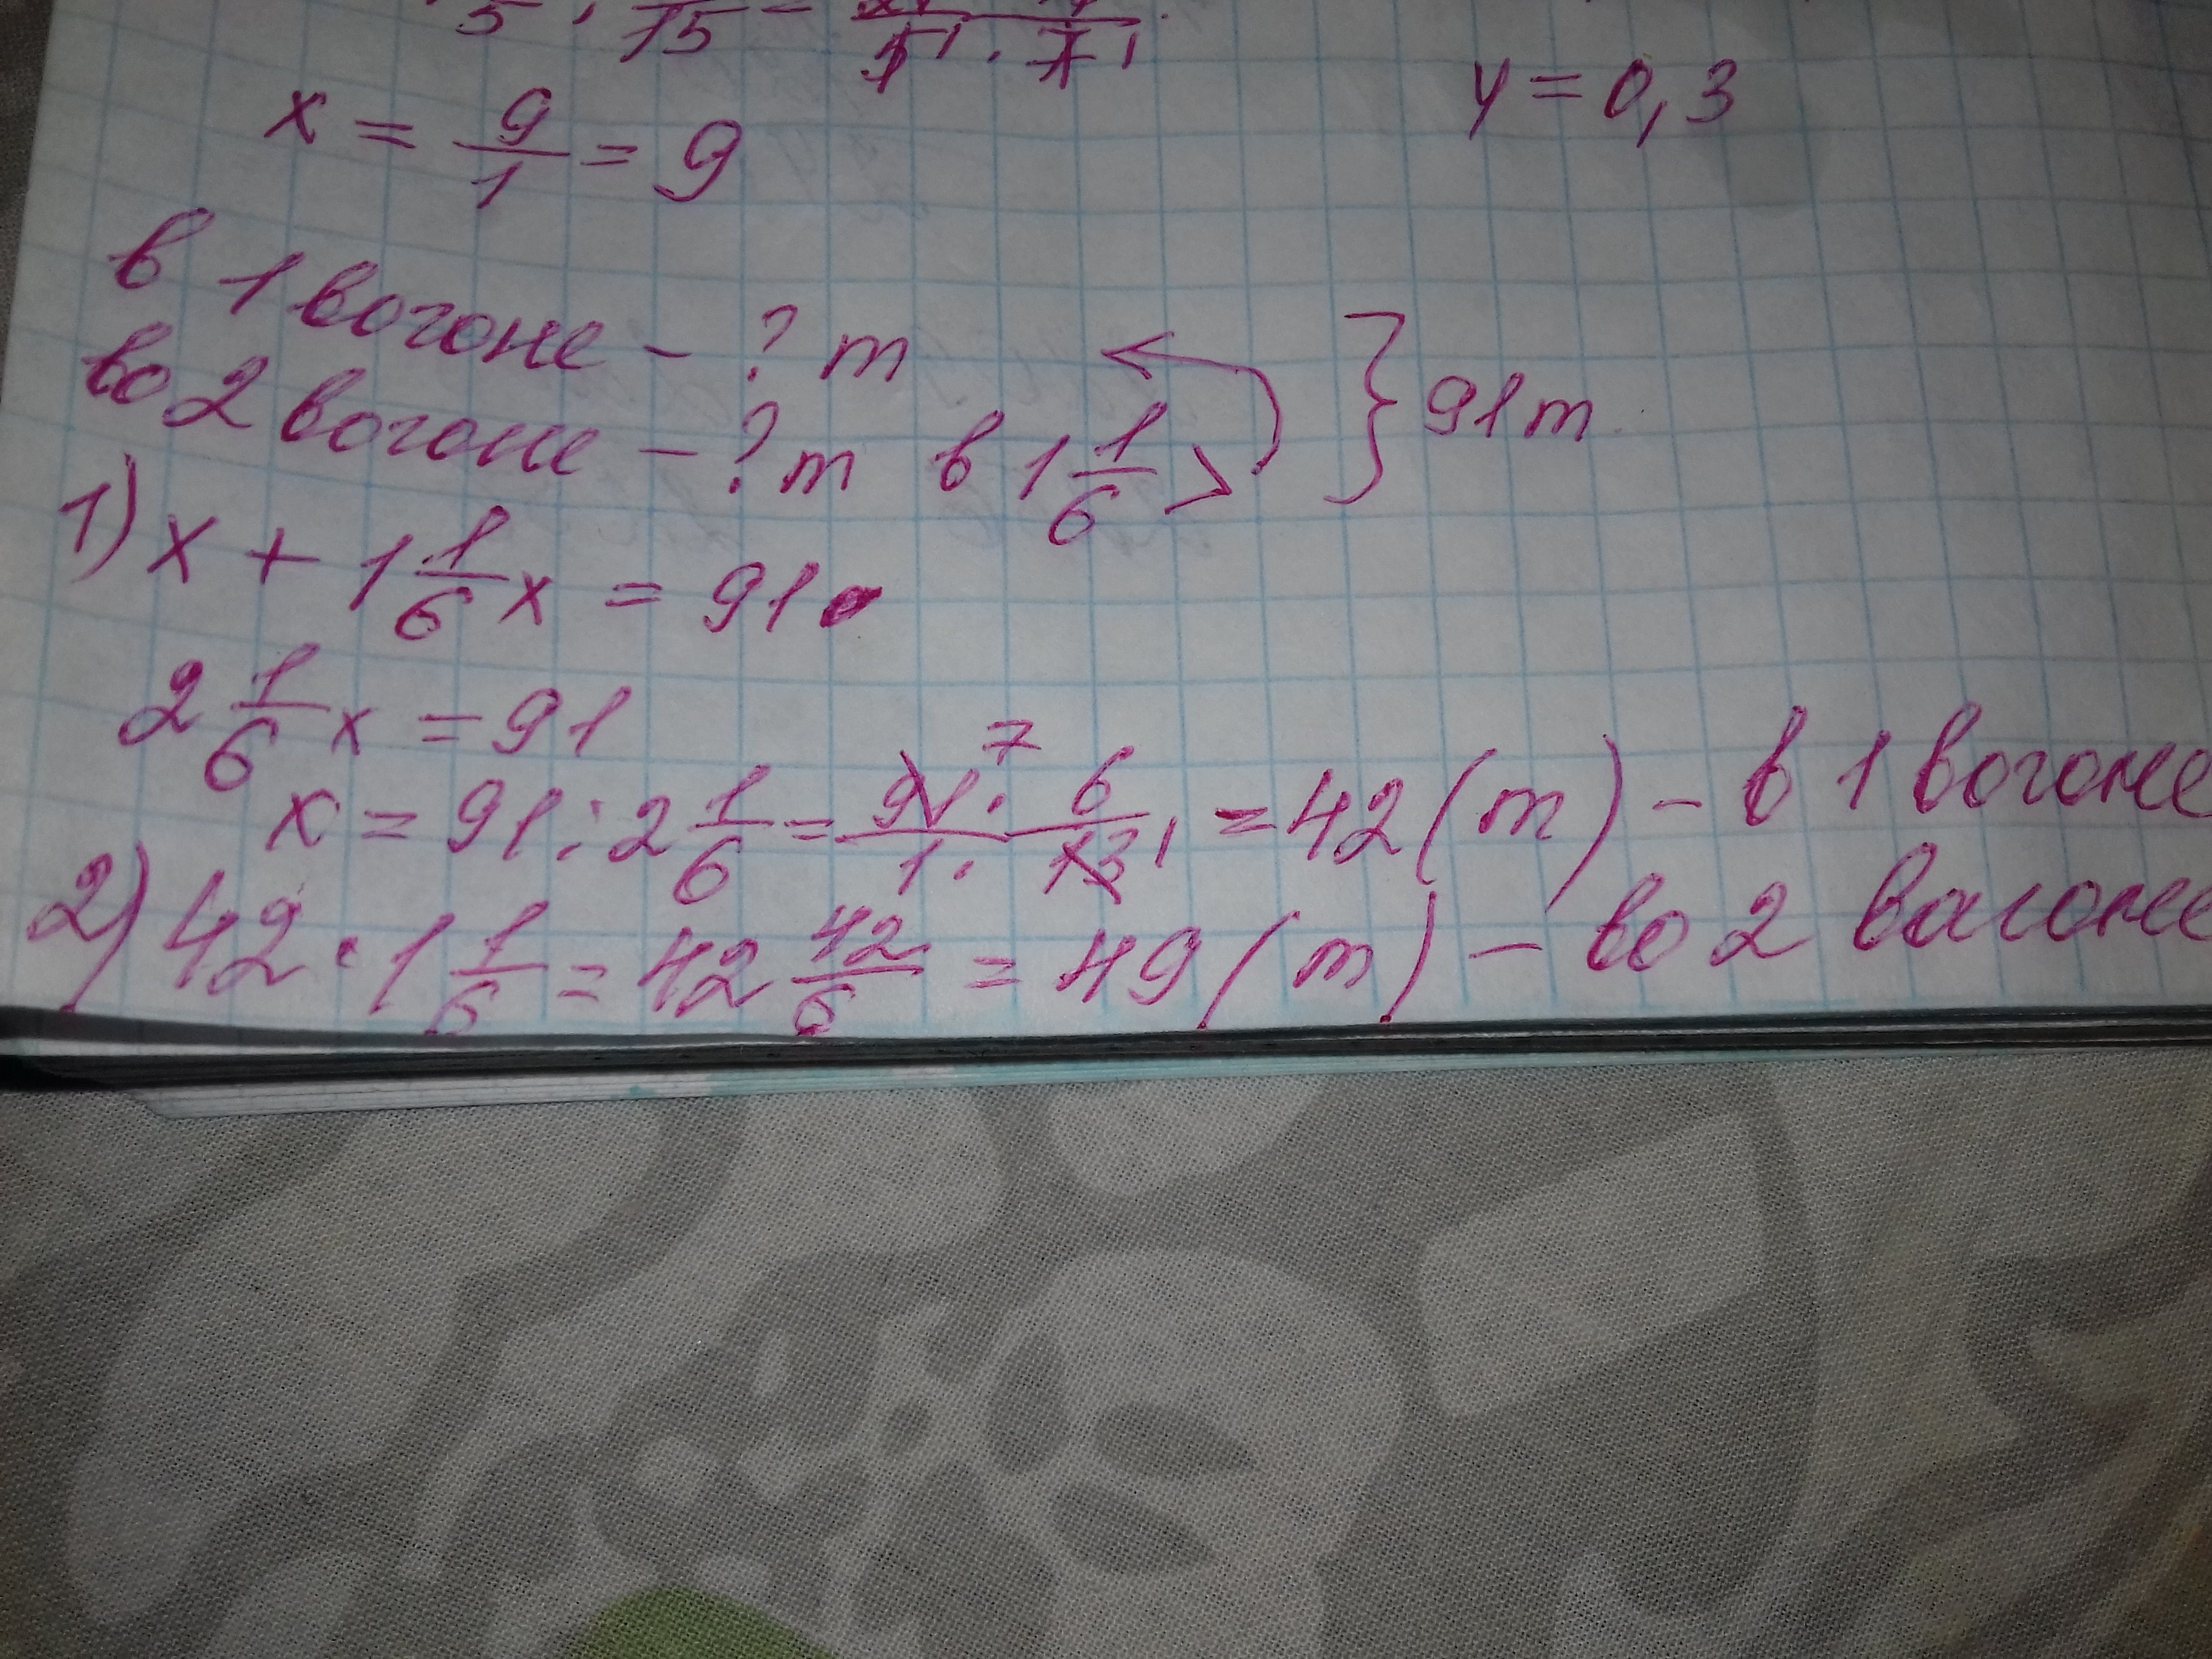 x = 9/1 = 9
y = 0,3
в 1 вогоне - ? т
во 2 вогоне - ? т в 1 1/6 > } 91 т
1) x + 1 1/6 x = 91
2 1/6 x = 91
x = 91 : 2 1/6 = 91 7 · 6 / 1 · 13 1 = 42 (т) - в 1 вогоне
2) 42 · 1 1/6 = 42 42/6 = 49 (т) - во 2 вагоне